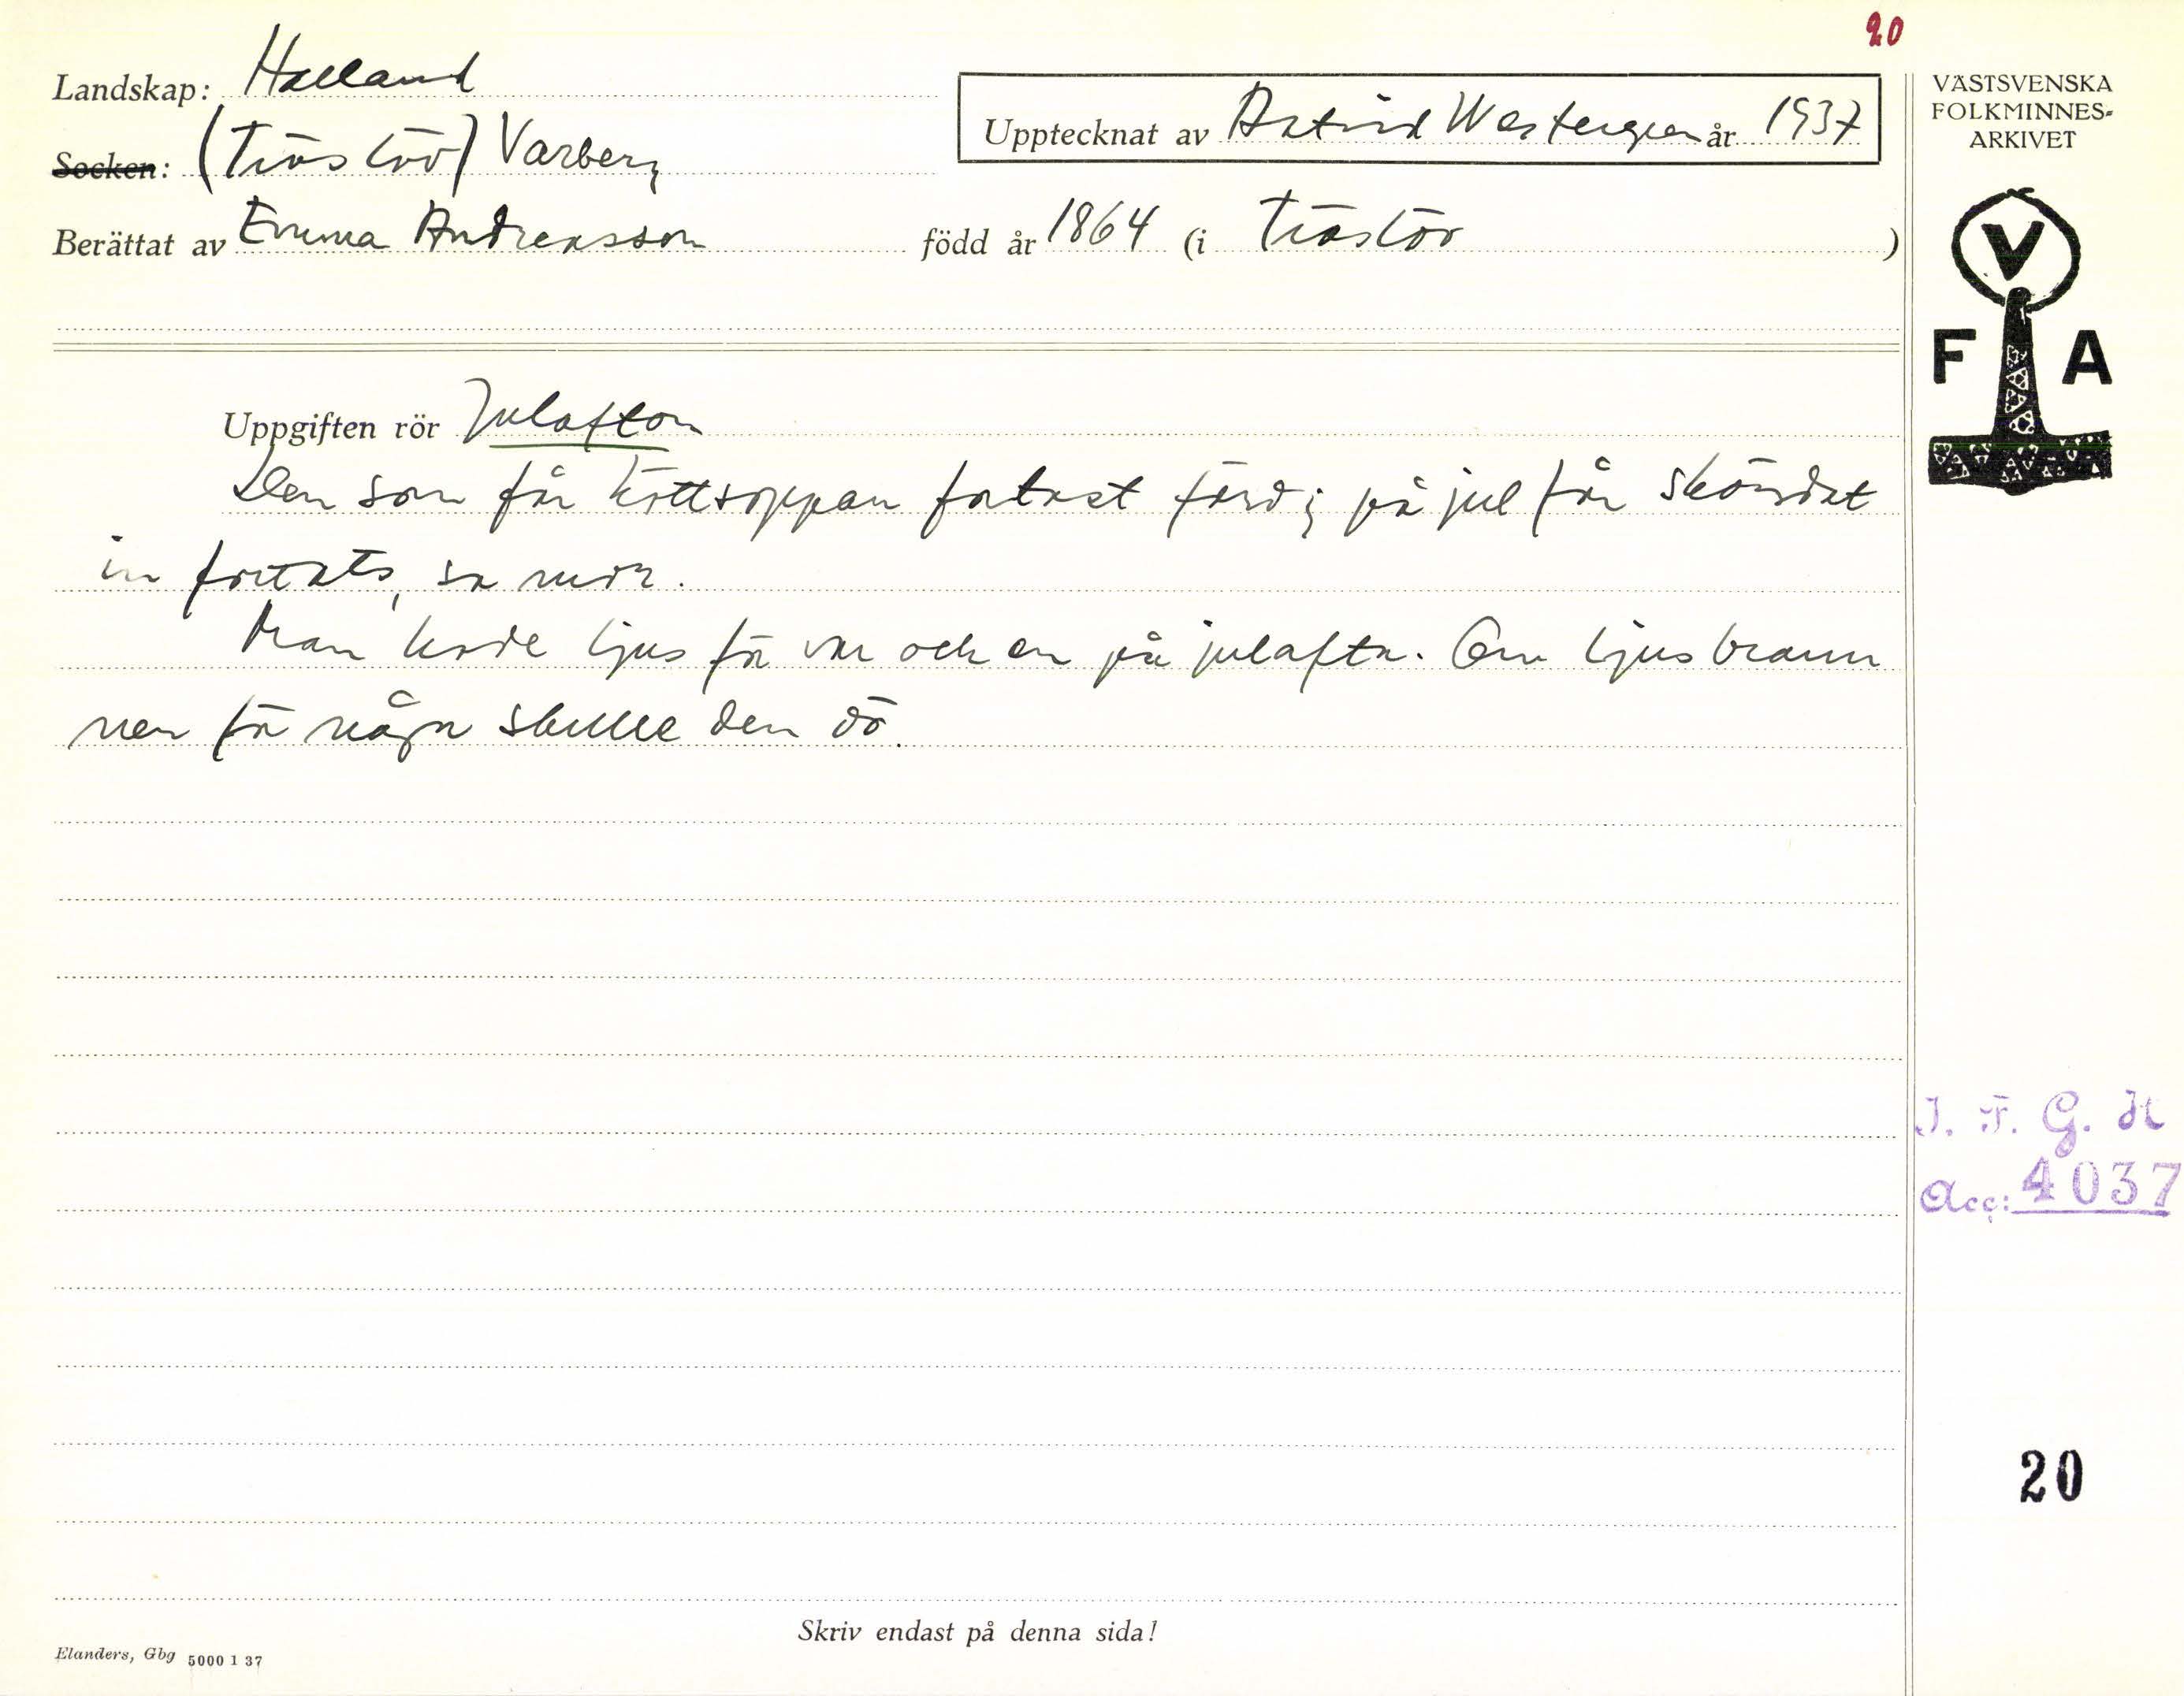 20
Landskap: Halland
Socken: (Träslöv) Varberg
Upptecknat av Astrid Westergren år 1937
Berättat av Emma Andreasson född år 1864 (i Träslöv)
Uppgiften rör Julafton
Den som får köttsoppan fortast färdig på jul får skördat
in fortats, sa mor.
Man hade ljus för var och en på julafton. Om ljus brann
ner för någon skulle den dö.
Skriv endast på denna sida!
Elanders, Gbg 5000 1 37
VÄSTSVENSKA
FOLKMINNES-
ARKIVET
V
F A
I. F. G. H
Acc: 4037
20